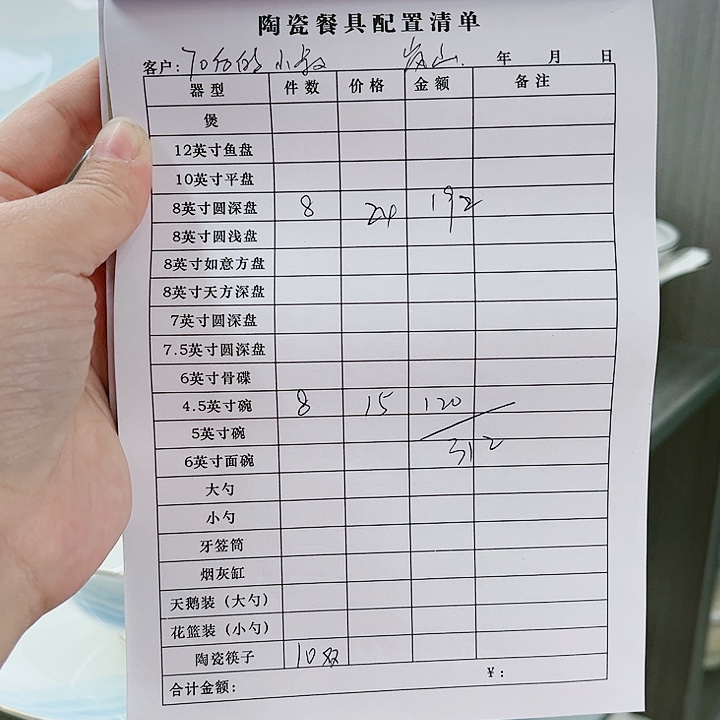 陶瓷餐具配置清单
客户: 70分的小 岚山 年 月 日
器型 件数 价格 金额 备注
煲
12英寸鱼盘
10英寸平盘
8英寸圆深盘 8 24 192
8英寸圆浅盘
8英寸如意方盘
8英寸天方深盘
7英寸圆深盘
7.5英寸圆深盘
6英寸骨碟
4.5英寸碗 8 15 120
5英寸碗
312
6英寸面碗
大勺
小勺
牙签筒
烟灰缸
天鹅装（大勺）
花篮装（小勺）
陶瓷筷子 10双
合计金额: ¥: